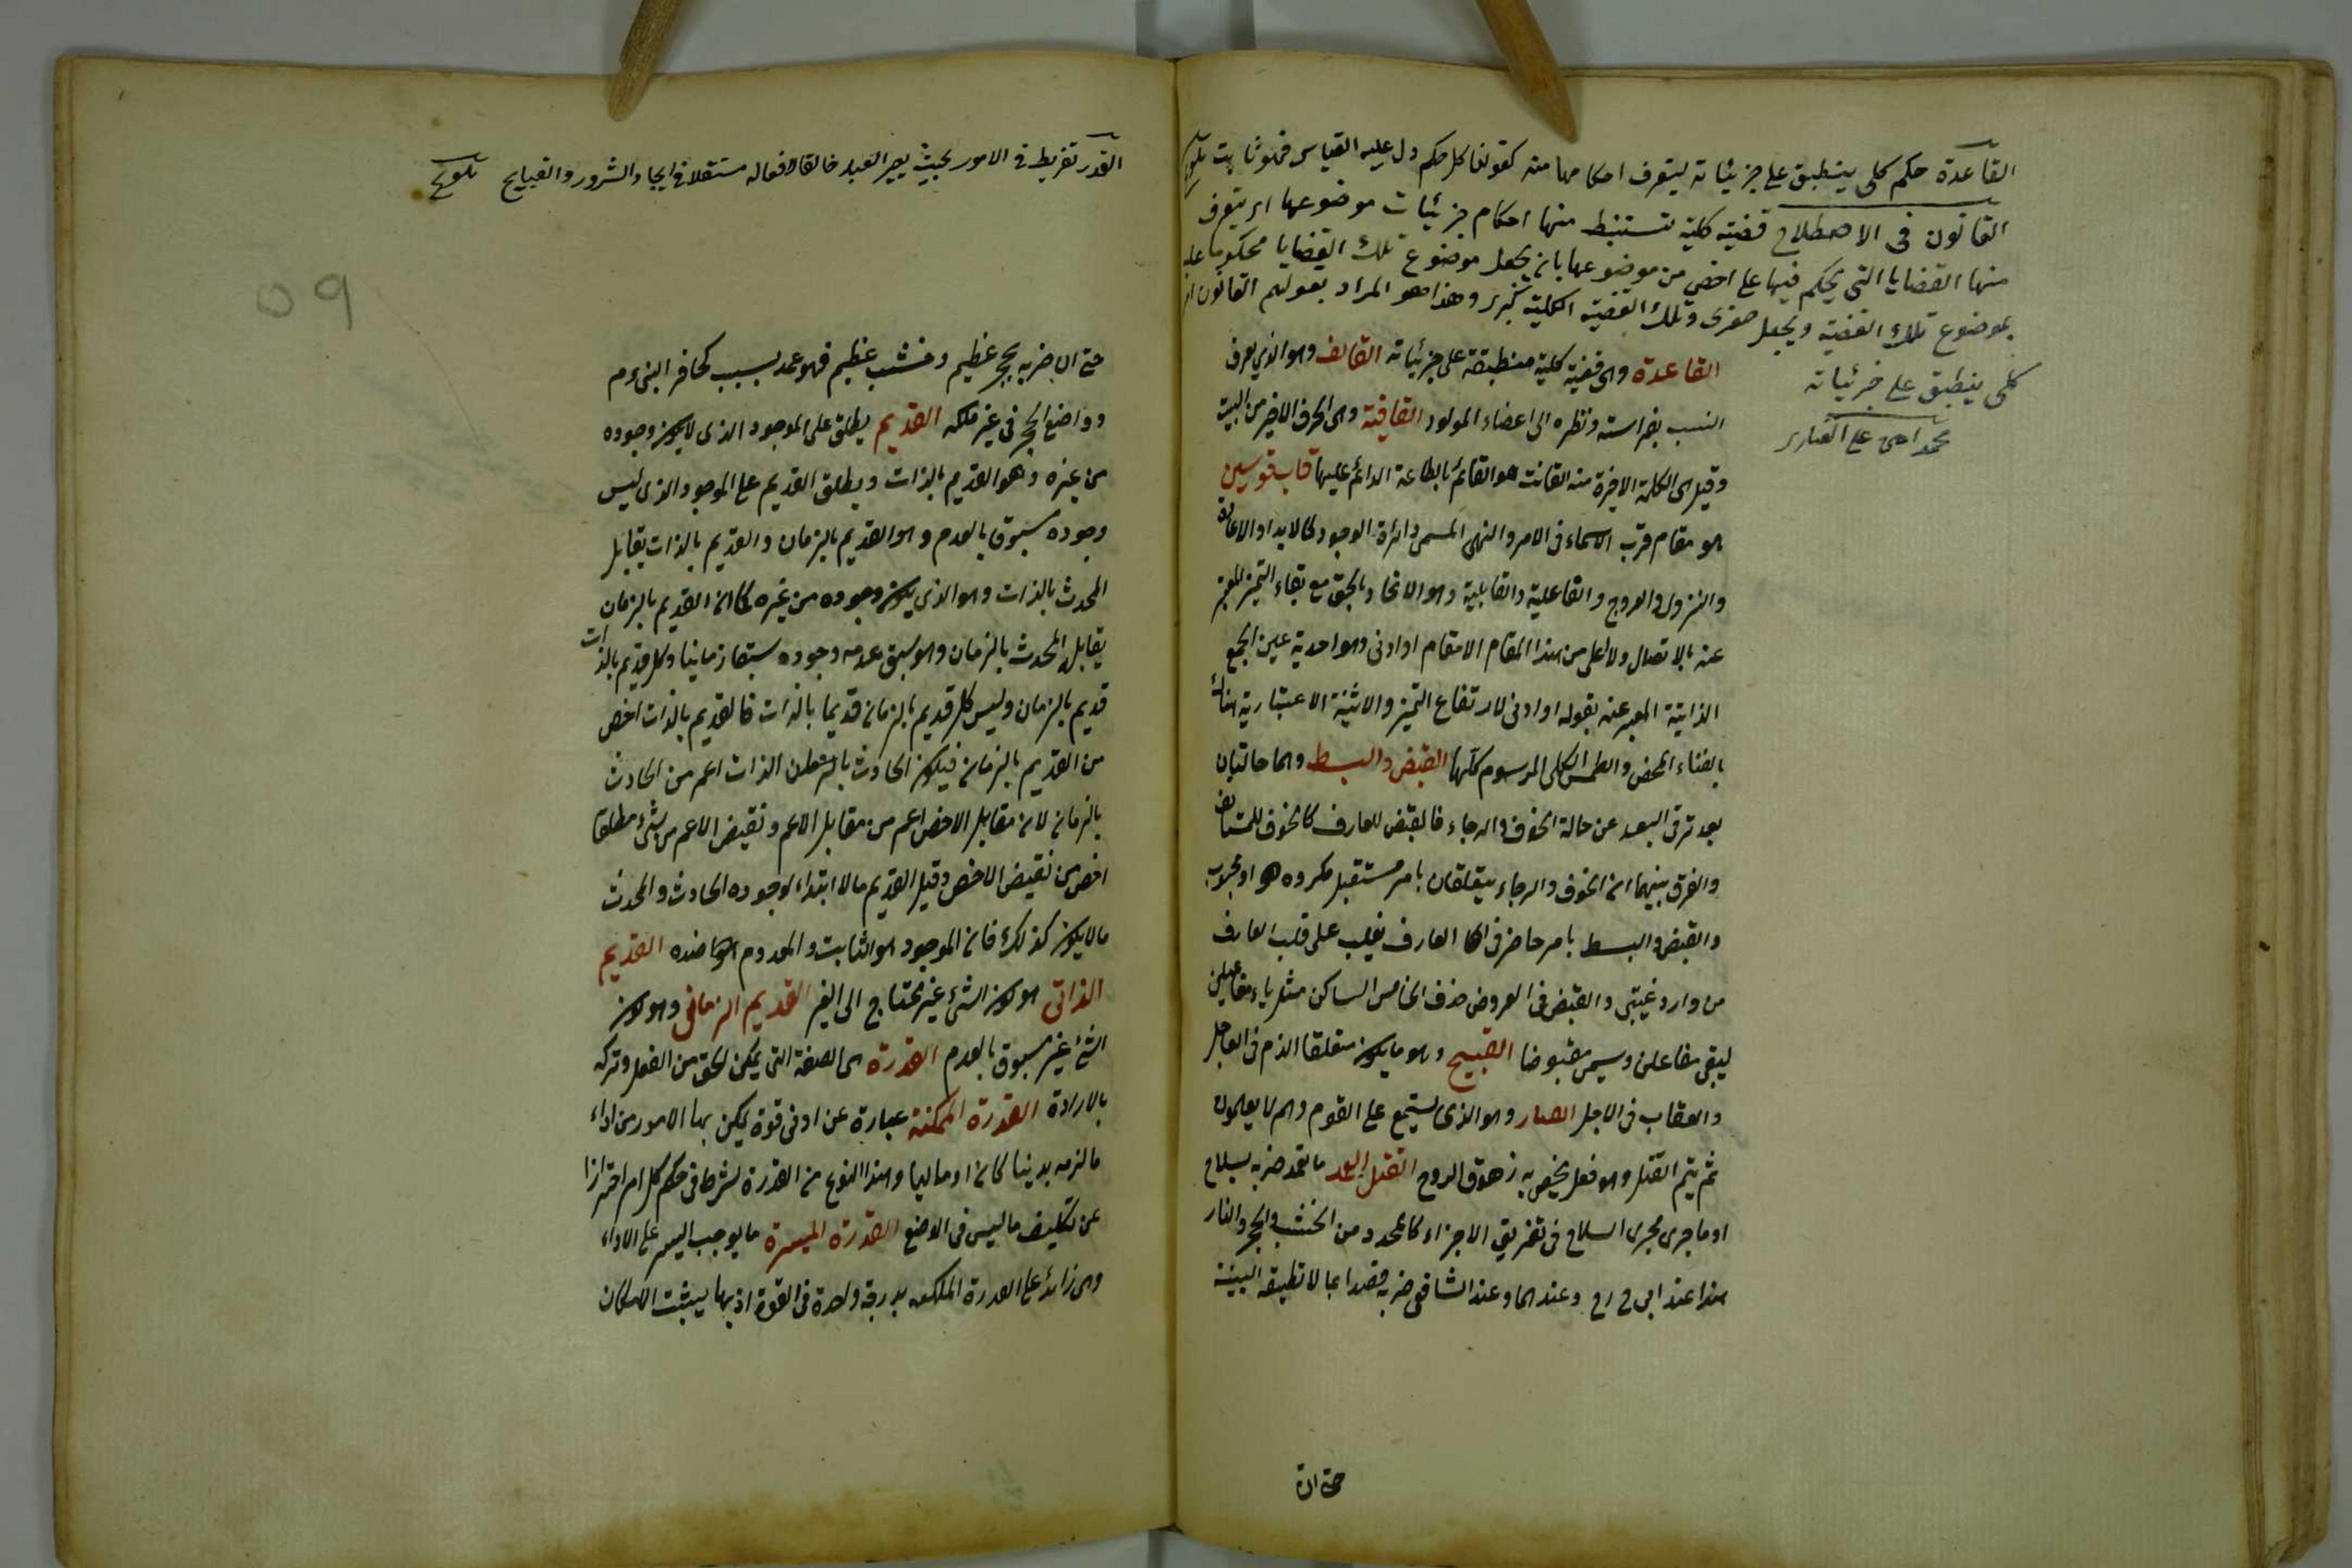 القاعدة حكم كلى ينطبق على جزئياته ليتعرف احكامها منه كقولنا كل حكم دل عليه القياس فهو ثابت تلويح
القانون فى الاصطلاح قضية كلية تستنبط منها احكام جزئيات موضوعها اى يتعرف
منها القضايا التى يحكم فيها على اخص من موضوعها بان يجعل موضوع تلك القضايا محكوما عليه
بموضوع تلك القضية ويجعل صغرى وتلك القضية الكلية كبرى وهذا هو المراد بقولهم القانون امر
كلى ينطبق على جزئياته
محمد امين على الفنارى
القاعدة وهى قضية كلية منطبقة على جزئياته القائف وهو الذى يعرف
النسب بفراسته ونظره الى اعضاء المولود القافية وهى الحرف الاخير من البيت
وقيل هى الكلمة الاخيرة منه القانت هو القائم بالطاعة الدائم عليها قاب قوسين
هو مقام قرب الاسماء فى الامر والنهى المسمى دائرة الوجود كالابداء والاعادة
والنزول والعروج والفاعلية والقابلية وهو الاتحاد بالحق مع بقاء التميز المعبر
عنه بالاتصال ولا اعلى من هذا المقام الا مقام او ادنى وهو احدية عين الجمع
الذاتية المعبر عنه بقوله او ادنى لارتفاع التميز والاثنينة الاعتبارية هناك
بالفناء المحض والطمس الكلى للرسوم كلها القبض والبسط وهما حالتان
بعد ترقى العبد عن حالة الخوف والرجاء فالقبض للعارف كالخوف للمستأنف
والفرق بينهما ان الخوف والرجاء يتعلقان بامر مستقبل مكروه او محبوب
والقبض والبسط بامر حاضر فى العارف يغلب على قلب العارف
من وارد غيبى والقبض فى العروض حذف الخامس الساكن مثل ياء مفاعيلن
ليبقى مفاعلن ويسمى مقبوضا القبيح وهو ما يكون متعلقا الذم فى العاجل
والعقاب فى الاجل القتات وهو الذى يستمع على القوم وهم لا يعلمون
ثم ينم القتل وهو فعل يحصل به زهوق الروح القتل العمد ما تعمد ضربه بسلاح
او ما جرى مجرى السلاح فى تفريق الاجزاء كالمحدد من الخشب والحجر والنار
هذا عند ابى ح رح وعندهما وعند الشافعى ضربه قصدا بما لا تطيقه البنية
حتى ان
القدر تفريط فى الامور بحيث يصير العبد خالقا لافعاله مستقلا فى ايجاد الشرور والقبايح تلويح
٥٩
حتى ان ضربه بحجر عظيم وخشب عظيم فهو عمد بسبب كحافر البئر م
وواضع الحجر فى غير ملكه القديم يطلق على الموجود الذى لا يكون وجوده
من غيره وهو القديم بالذات ويطلق القديم على الموجود الذى ليس
وجوده مسبوق بالعدم وهو القديم بالزمان والقديم بالذات يقابل
المحدث بالذات وهو الذى يكون وجوده من غيره كما ان القديم بالزمان
يقابل المحدث بالزمان وهو سبق عدمه وجوده سبقا زمانيا وكل قديم بالذات
قديم بالزمان وليس كل قديم بالزمان قديما بالذات فالقديم بالذات اخص
من القديم بالزمان فيكون الحادث بالذات اعم من الحادث
بالزمان لان مقابل الاخص اعم من مقابل الاعم ونقيض الاعم من شئ مطلقا
اخص من نقيض الاخص وقيل القديم ما لا ابتداء لوجوده الحادث والمحدث
ما لا يكون كذلك فان الموجود هو الثابت والمعدوم ضده القديم
الذاتى هو كون الشئ غير محتاج الى الغير القديم الزمانى وهو كون
الشئ غير مسبوق بالعدم القدرة هى الصفة التى يمكن الحى من الفعل وتركه
بالارادة القدرة الممكنة عبارة عن ادنى قوة يمكن بها الامور من اداء
ما لزمه بدنيا كان او ماليا وهذا النوع من القدرة شرط فى حكم كل امر احترازا
عن تكليف ما ليس فى الوسع القدرة الميسرة ما يوجب اليسر على الاداء
وهى زائدة على القدرة الممكنة بدرجة واحدة فى القوة اذ بها يثبت الامكان